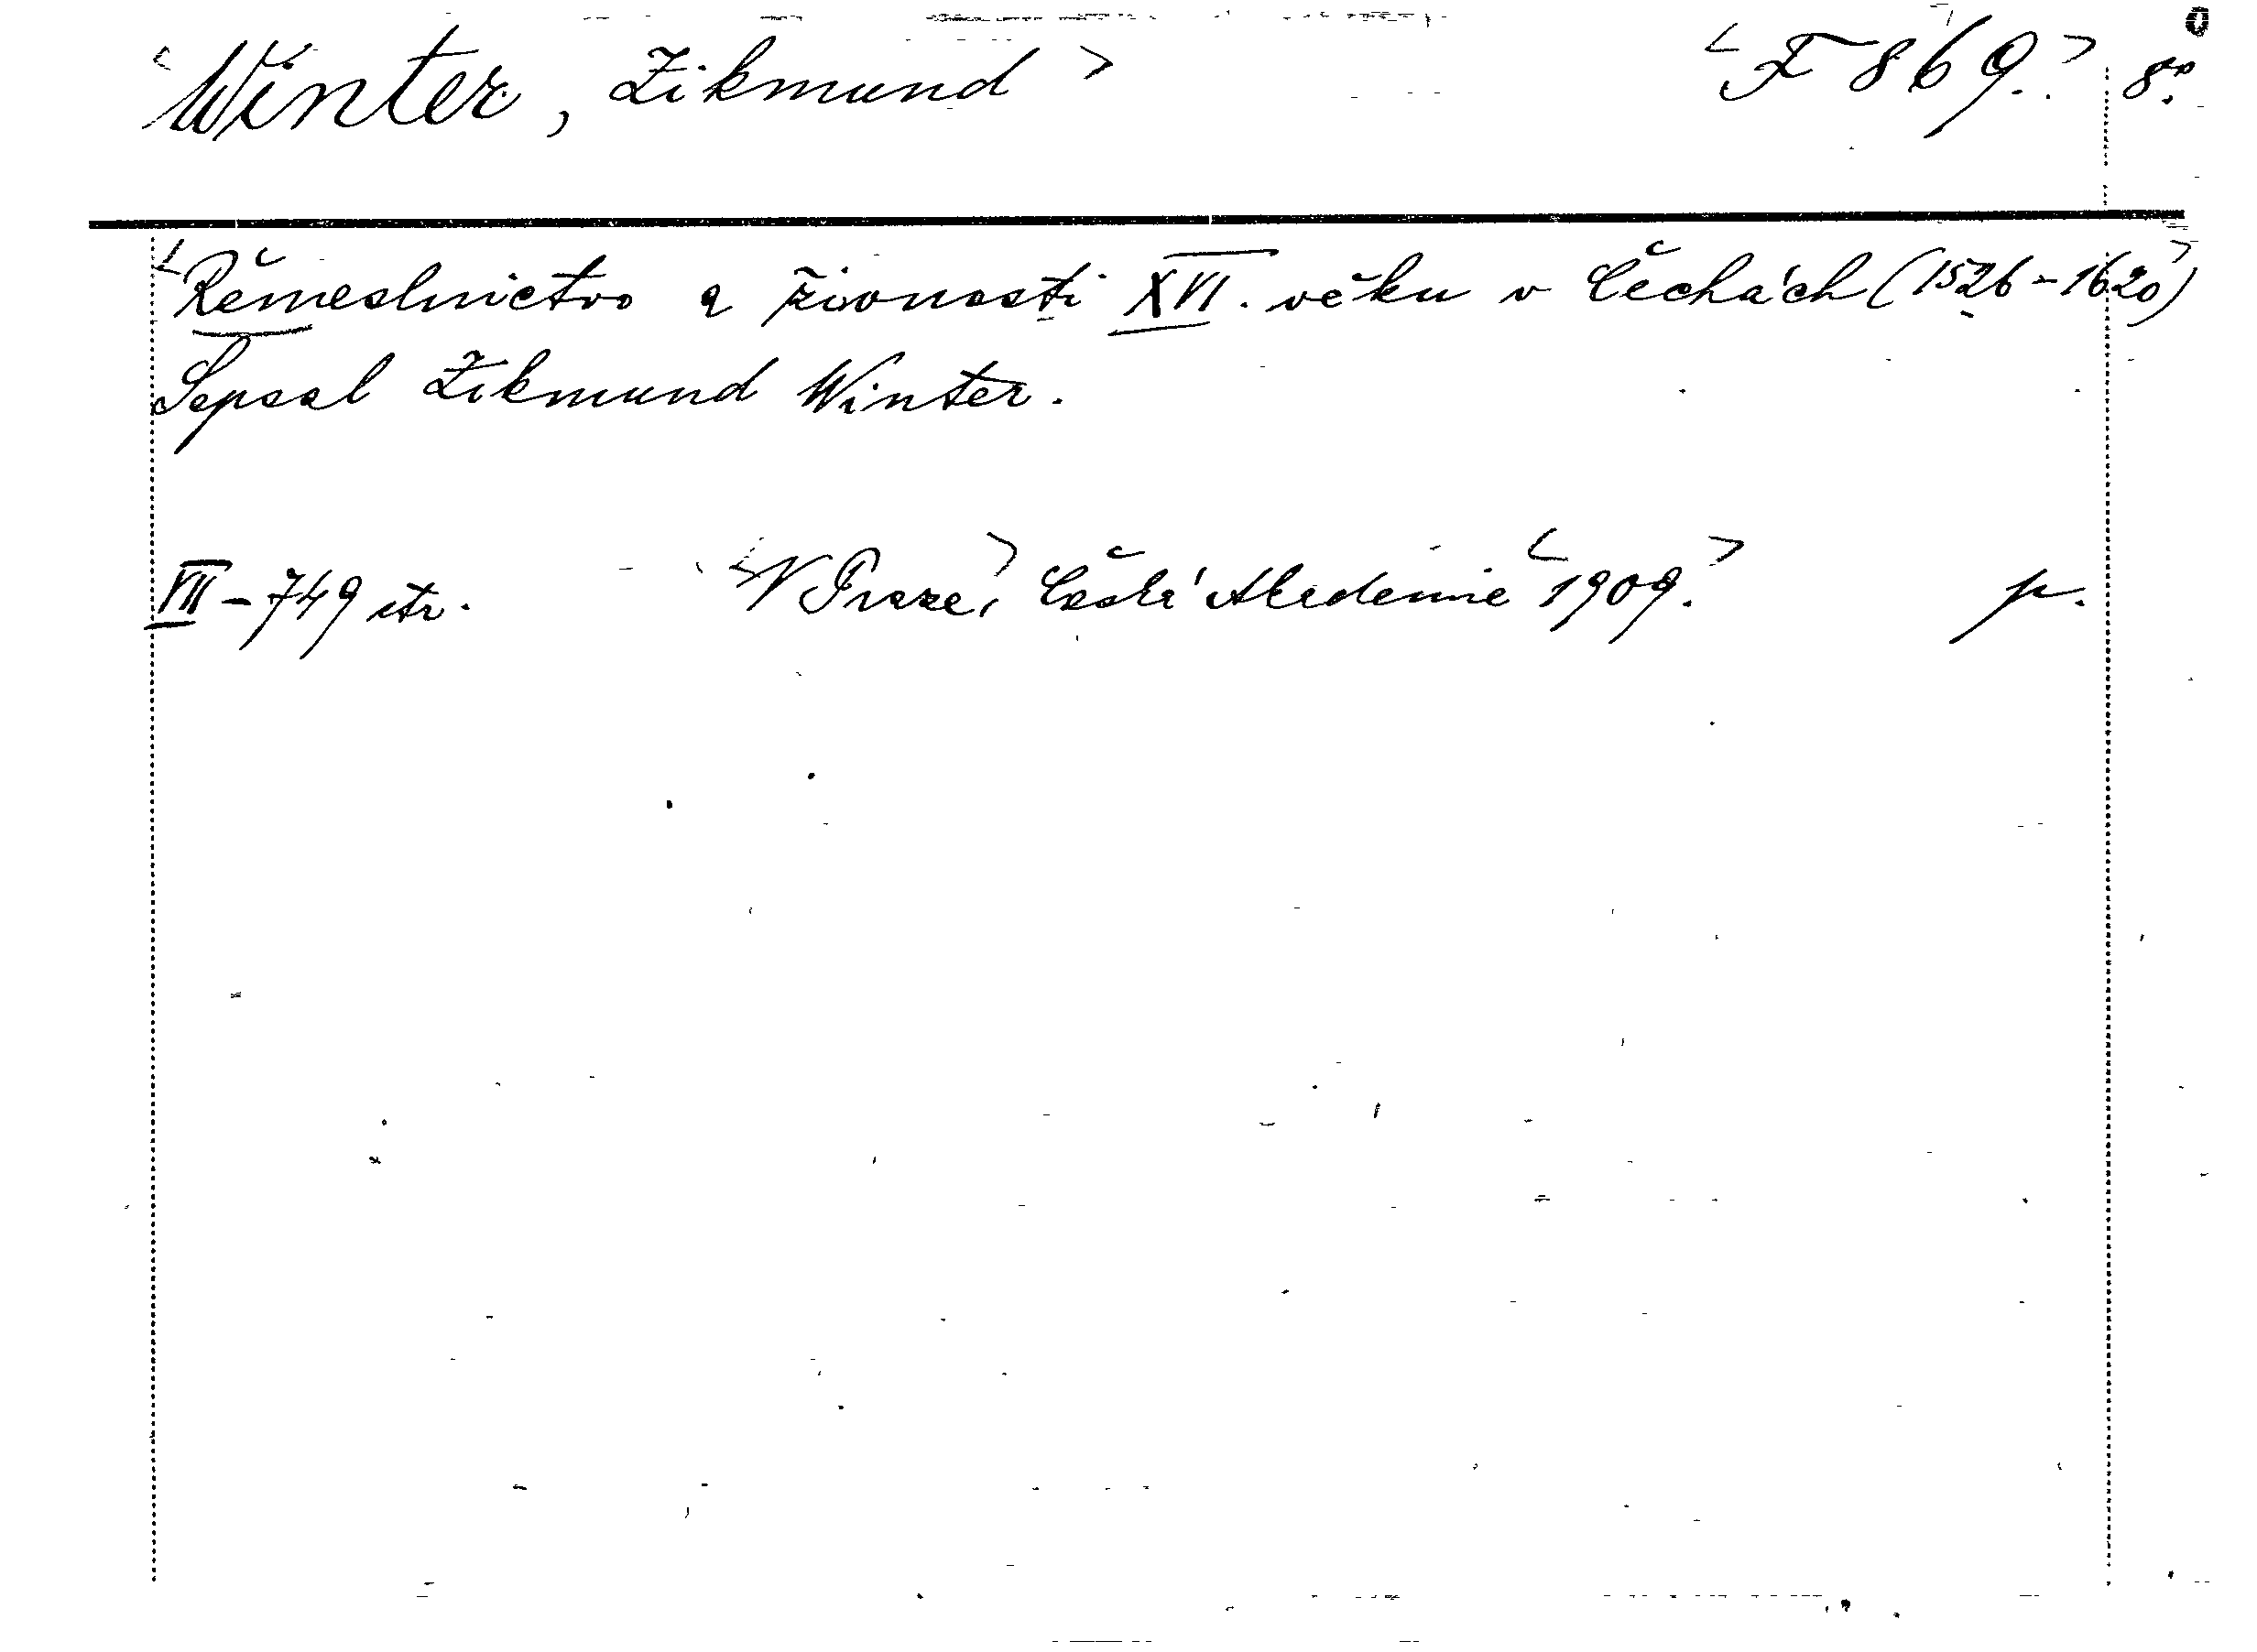 <Winter, Zikmund> <F 869.> 8°.
<Řemeslnictvo a živnosti XVI. věku v Čechách (1526-1620)>
Sepsal Zikmund Winter.
VII - 749 str. <V Praze,> Česká Akademie <1909.> p.